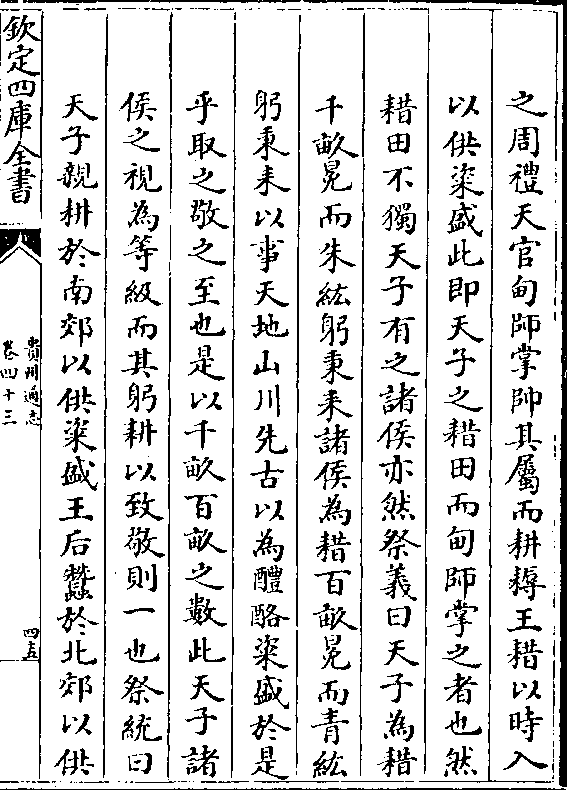 之周禮天官甸師掌帥其屬而耕耨王耤以時入
以供粢盛此即天子之耤田而甸師掌之者也然
耤田不獨天子有之諸侯亦然祭義曰天子為耤
千畝冕而朱紘躬秉耒諸侯為耤百畝冕而青紘
躬秉耒以事天地山川先古以為醴酪粢盛於是
乎取之敬之至也是以千畝百畝之數此天子諸
侯之視為等級而其躬耕以致敬則一也祭統曰
天子親耕於南郊以供粢盛王后蠶於北郊以供
欽定四庫全書
貴州通志
卷四十三
四五